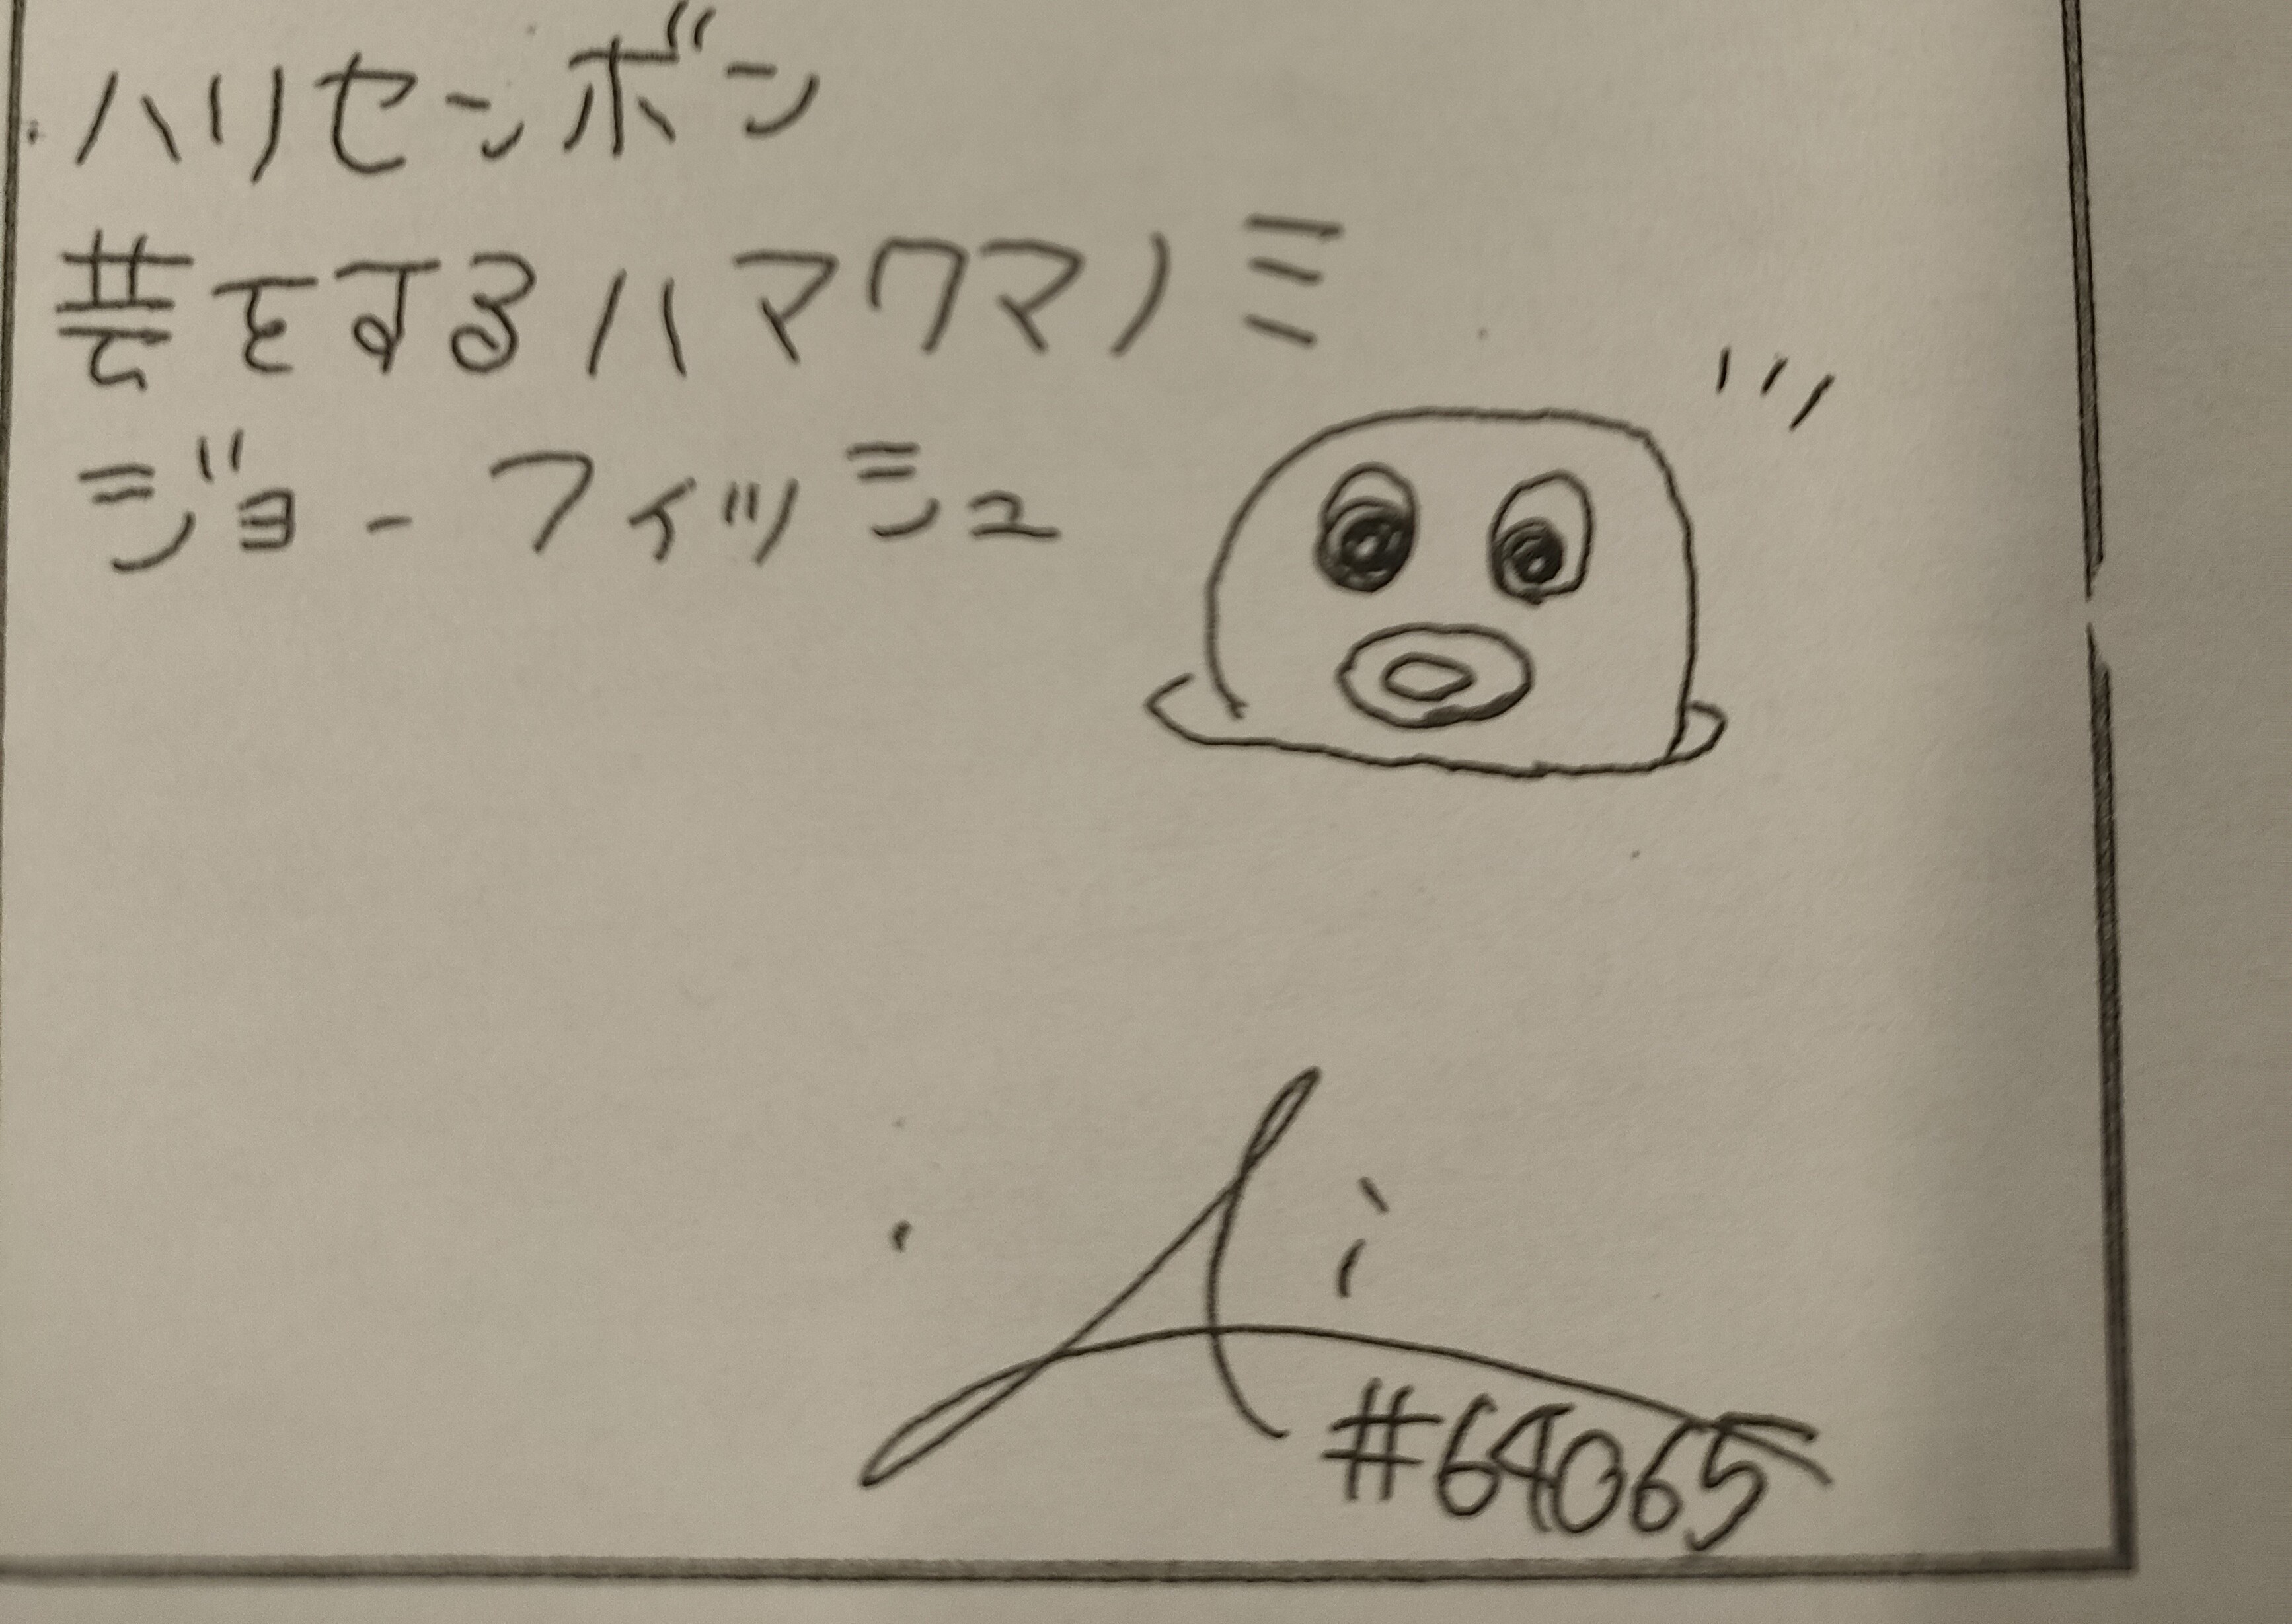 ハリセンボン
芸をするハマクマノミ
ジョーフィッシュ
Ai
#64065